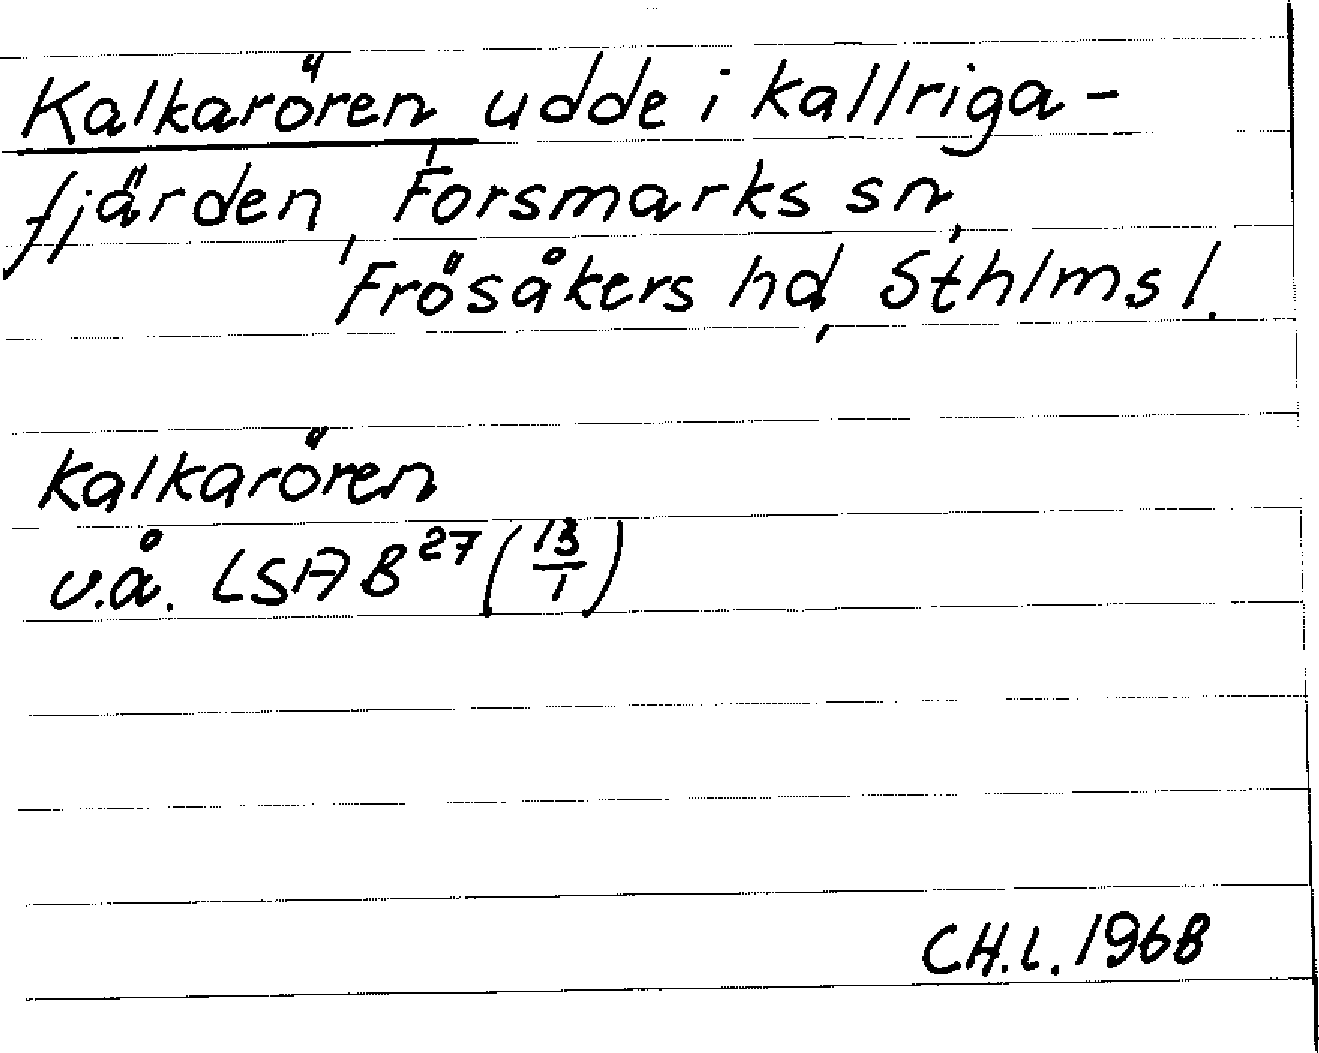 Kalkarören, udde i Kallriga-
fjärden, Forsmarks sn,
Frösåkers hd, Sthlms l.
Kalkarören
v.å. LSA B²⁷ (13/1)
CH.L. 1968